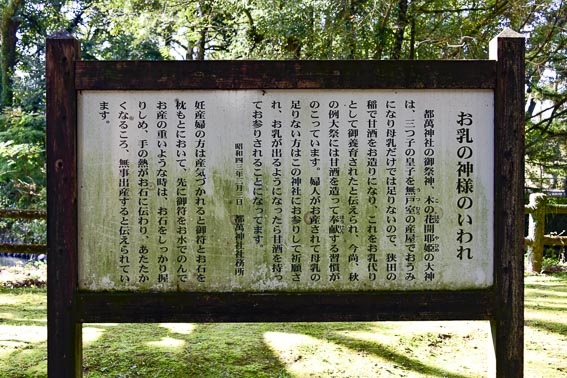 お乳の神様のいわれ
都萬神社の御祭神、木の花開耶姫の大神
は、三つ子の皇子を無戸室の産屋でおうみ
になり母乳だけでは足りないので、狭田の
稲で甘酒をお造りになり、これをお乳代り
として御養育されたと伝えられ、今尚、秋
の例大祭には甘酒を造って奉献する習慣が
のこっています。婦人がお産されて母乳の
足りない方はこの神社にお参りして祈願さ
れ、お乳が出るようになったら甘酒を持っ
てお参りされることになってます。
昭和四二年二月二日 都萬神社社務所
妊産婦の方は産気づかれると御符とお石を
枕もとにおいて、先に御符をお水でのんで
お産の重いような時は、お石をしっかり握
りしめ、手の熱がお石に伝わり、あたたか
くなるころ、無事出産すると伝えられてい
ます。